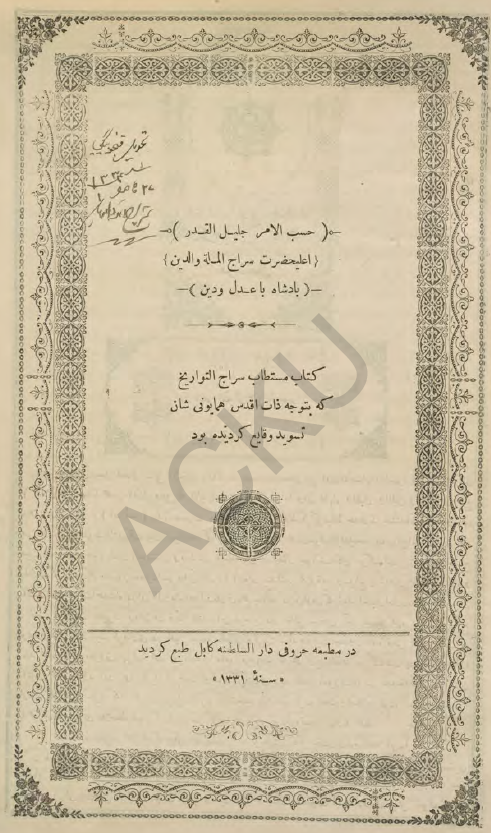 ﴿ حسب الامر جليل القدر ﴾
{ اعليحضرت سراج الملة والدين }
—( پادشاه با عدل ودين )—
كتاب مستطاب سراج التواريخ
كه بتوجه ذات اقدس همايونى شان
تسويد وقايع كرديده بود
ACKU
در مطبعه حروفى دار السلطنه كابل طبع كرديد
« سنۀ ۱۳۳۱ »